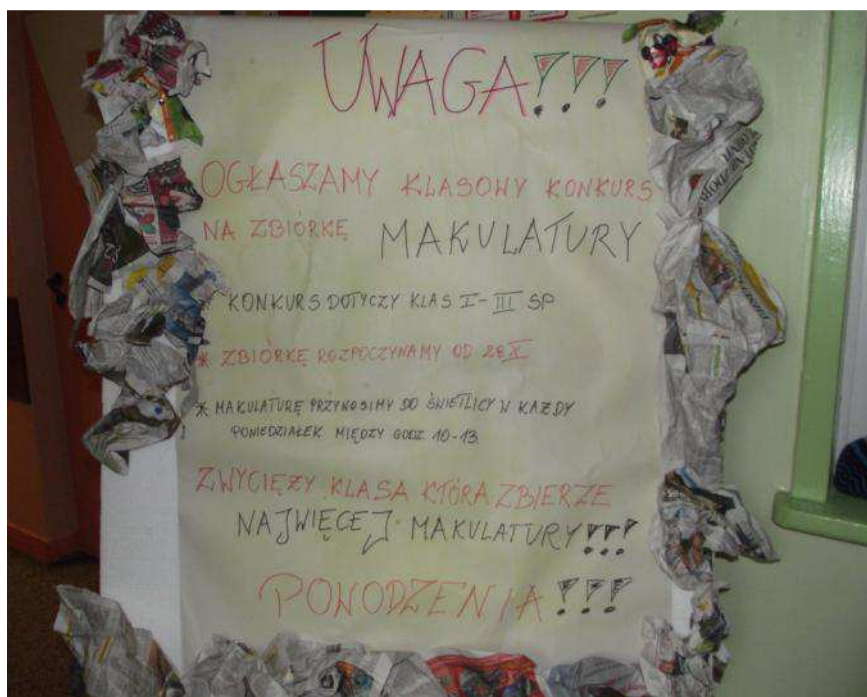 UWAGA!!!
OGŁASZAMY KLASOWY KONKURS
NA ZBIÓRKĘ MAKULATURY
* KONKURS DOTYCZY KLAS I-III SP
* ZBIÓRKĘ ROZPOCZYNAMY OD 28 X
* MAKULATURĘ PRZYNOSIMY DO ŚWIETLICY W KAŻDY
PONIEDZIAŁEK MIĘDZY GODZ 10-13
ZWYCIĘŻY KLASA KTÓRA ZBIERZE
NAJWIĘCEJ MAKULATURY!!!
POWODZENIA!!!